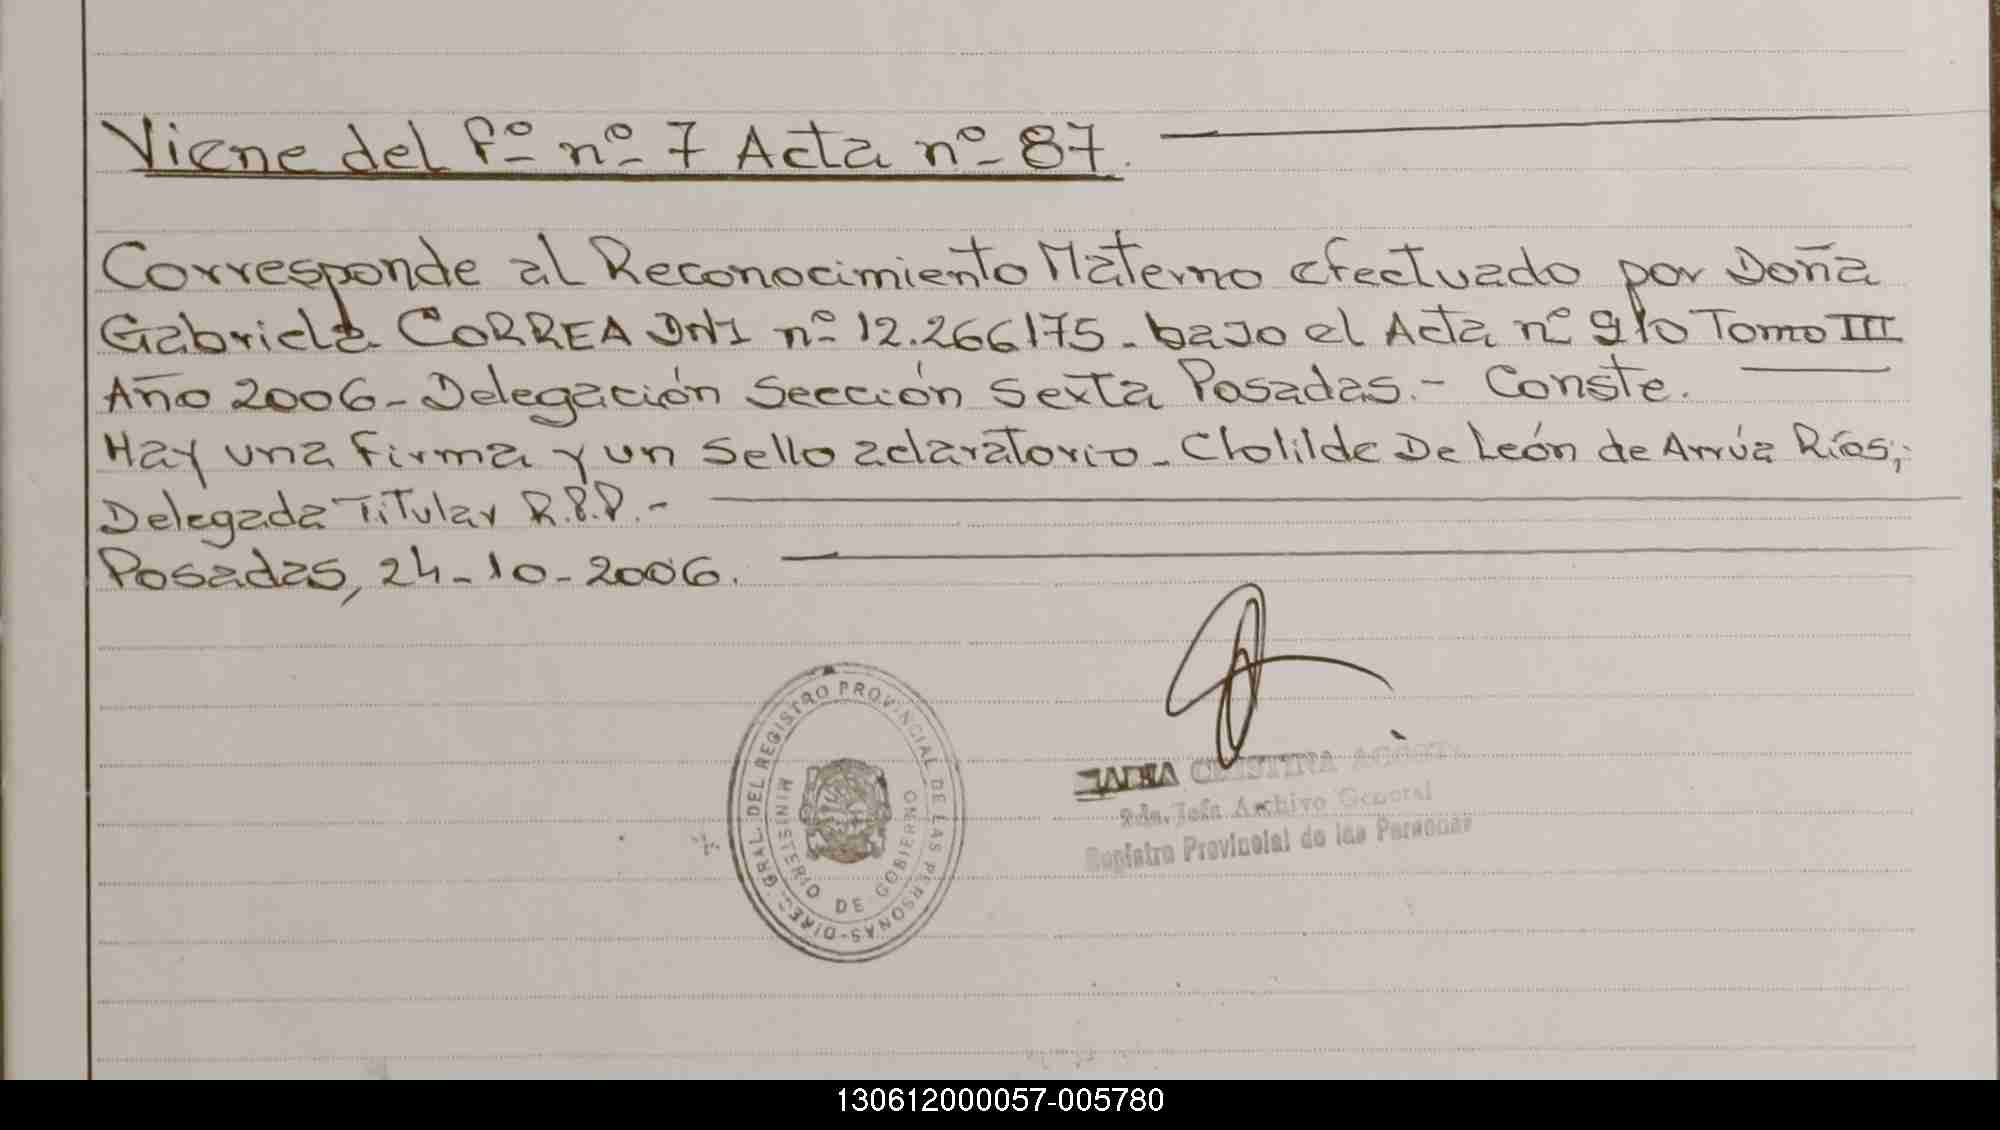 Viene del fº nº 7 Acta nº 87.
Corresponde al Reconocimiento Materno efectuado por Doña
Gabriela CORREA DNI nº 12.266175. bajo el Acta nº 910 Tomo III
Año 2006 - Delegación Sección Sexta Posadas.- Conste.
Hay una firma y un sello aclaratorio - Clotilde De León de Arrúa Ríos,-
Delegada Titular R.P.P.-
Posadas, 24-10-2006.
DIREC. GRAL. DEL REGISTRO PROVINCIAL DE LAS PERSONAS-
MINISTERIO DE GOBIERNO
CRISTINA
Archivo General
Registro Provincial de las Personas
130612000057-005780